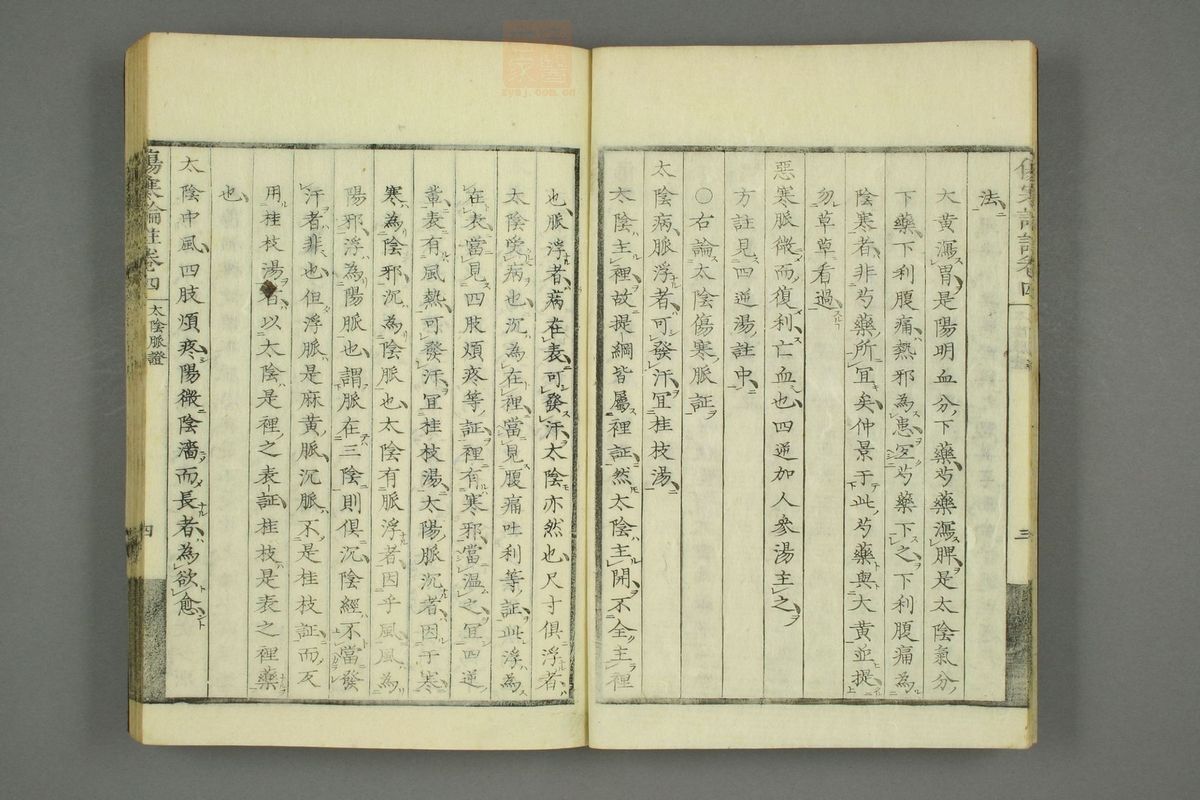 法
大黃瀉胃是陽明血分下藥芍藥瀉脾是太陰氣分
下藥下利腹痛熱邪為患宜芍藥下之下利腹痛為
陰寒者非芍藥所宜矣仲景于此芍藥與大黃並提
勿草草看過
惡寒脈微而復利亡血也四逆加人參湯主之
方註見四逆湯註中
○右論太陰傷寒脈証
太陰病脈浮者可發汗宜桂枝湯
太陰主裡故提綱皆屬裡証然太陰主開不全主裡
三
也脈浮者病在表可發汗太陰亦然也尺寸俱浮者
太陰受病也沉為在裡當見腹痛吐利等証此浮為
在表當見四肢煩疼等証裡有寒邪當溫之宜四逆
軰表有風熱可發汗宜桂枝湯太陽脈沉者因于寒
寒為陰邪沉為陰脈也太陰有脈浮者因乎風風為
陽邪浮為陽脈也謂脈在三陰則俱沉陰經不當發
汗者非也但浮脈是麻黃脈沉脈不是桂枝証而反
用桂枝湯者以太陰是裡之表証桂枝是表之裡藥
也
太陰中風四肢煩疼陽微陰濇而長者為欲愈
傷寒論註卷四
太陰脈證
四